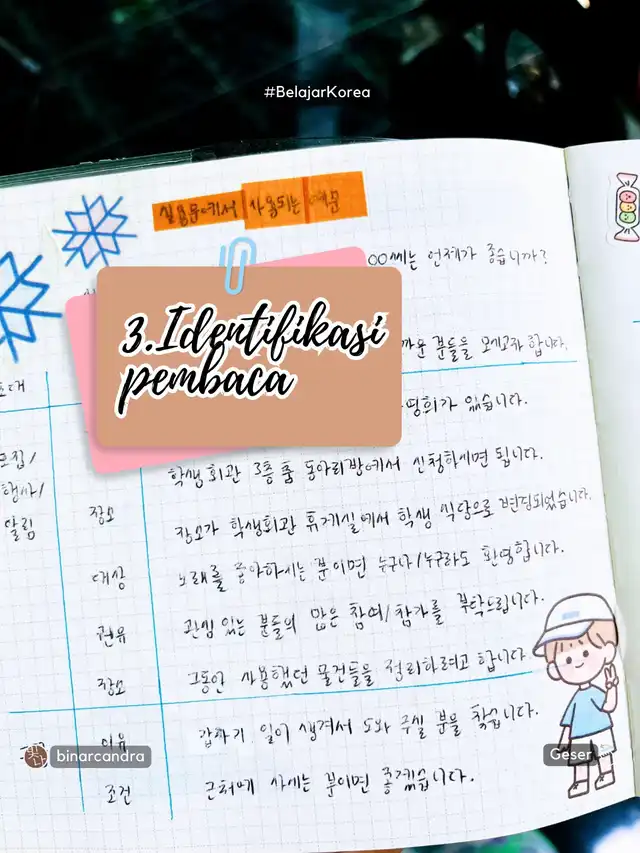 #BelajarKorea
실용문에서 사용되는 예문
OO씨는 언제가 좋습니까?
3.Identifikasi
pembaca
분들을 모시고자 합니다.
명회가 있습니다.
모집/
행사/
알림
학생회관 3층 춤 동아리방에서 신청하시면 됩니다.
장소
장소가 학생회관 휴게실에서 학생 식당으로 변경되었습니다.
대상
노래를 좋아하시는 분이면 누구나/누구라도 환영합니다.
권유
관심 있는 분들의 많은 참여/참가를 부탁드립니다.
장소
그동안 사용했던 물건들을 정리하려고 합니다.
이유
갑자기 일이 생겨서 도와 주실 분을 찾습니다.
조건
근처에 사시는 분이면 좋겠습니다.
binarcandra
Geser